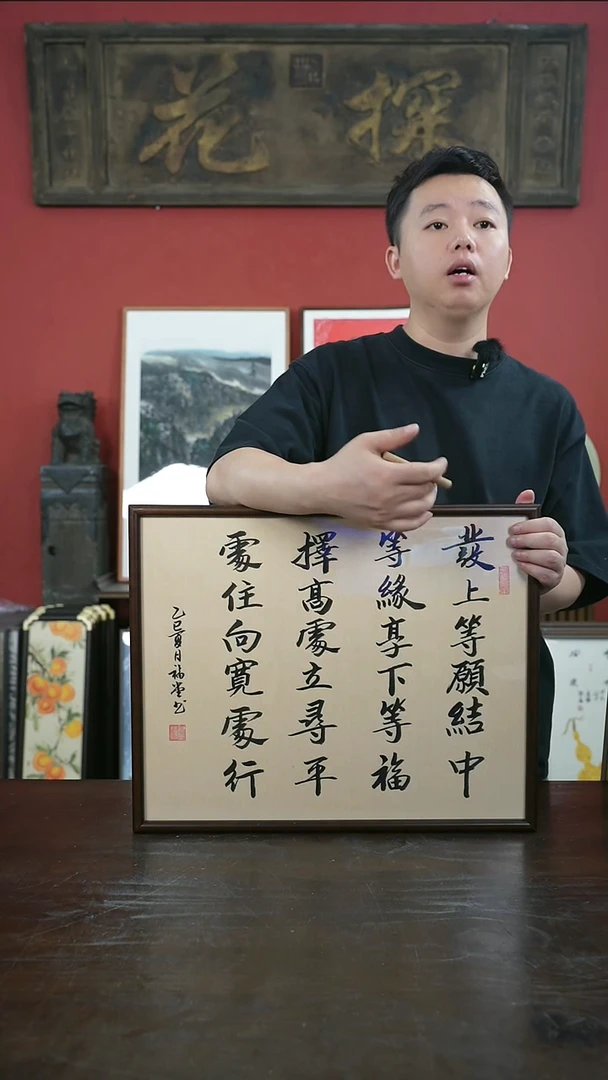 探花
發上等願結中
等緣享下等福
擇高處立尋平
處住向寬處行
乙巳夏月福堂书